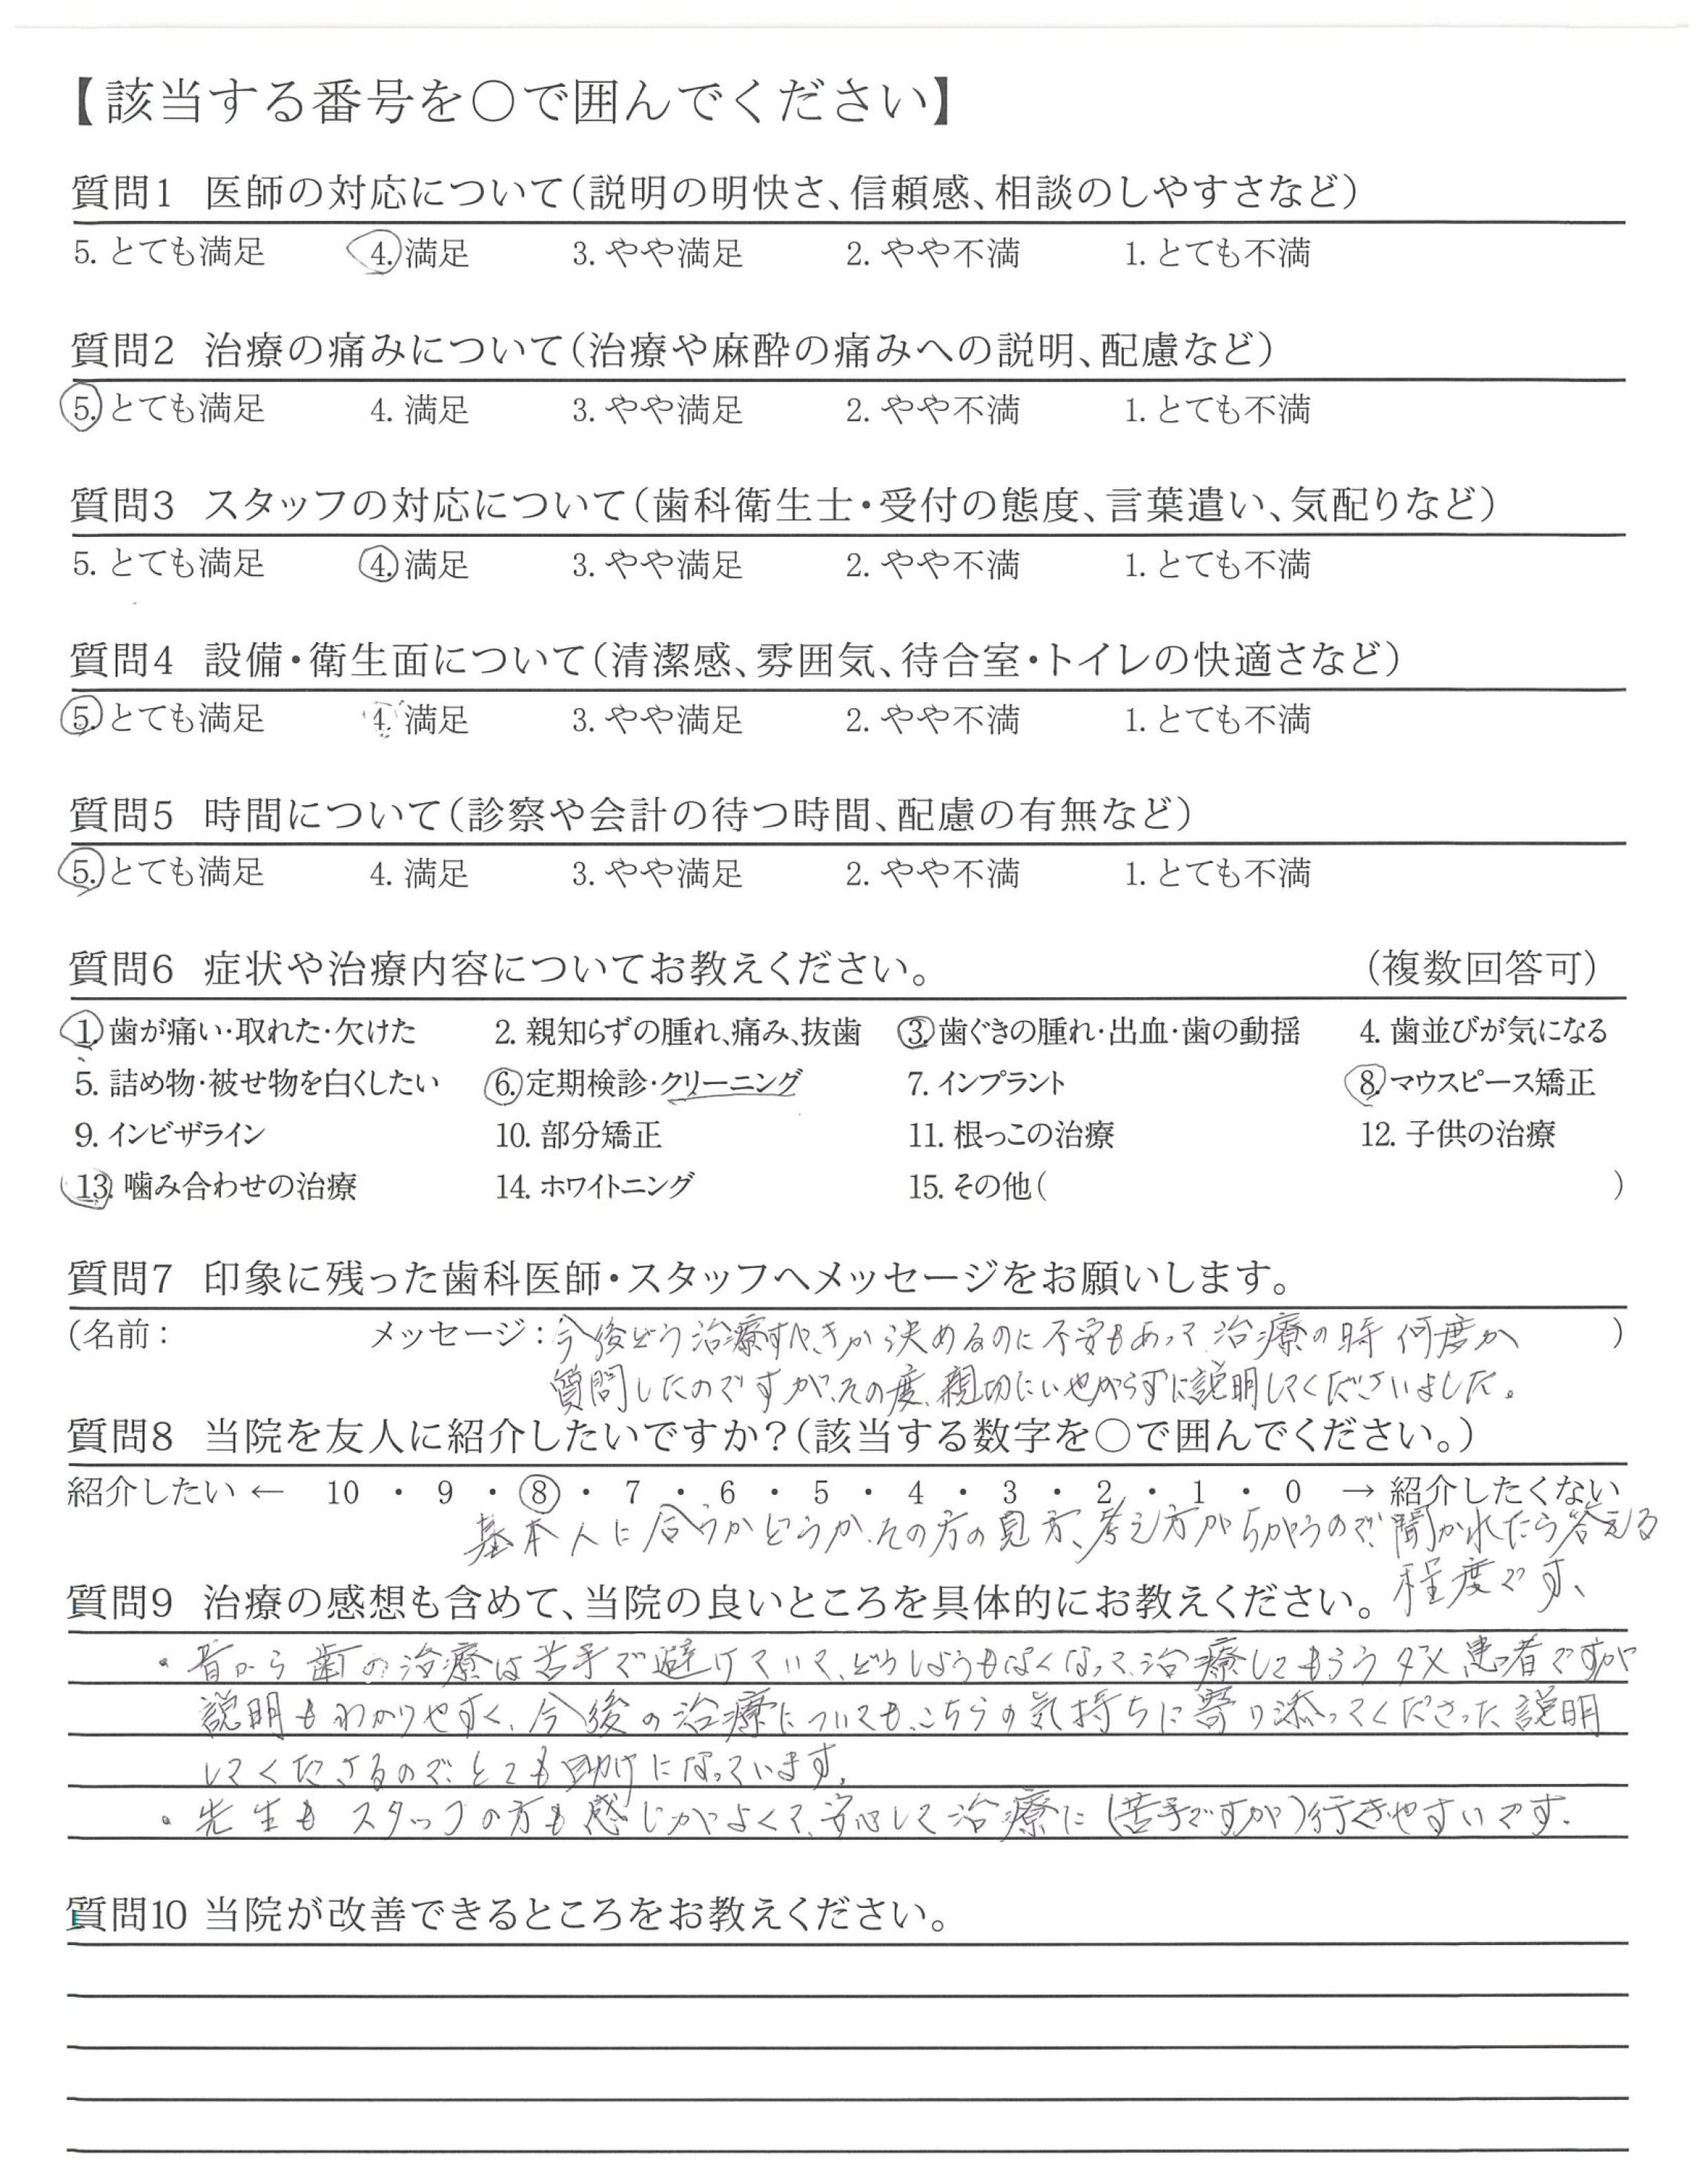 【該当する番号を〇で囲んでください】
質問1 医師の対応について(説明の明快さ、信頼感、相談のしやすさなど)
5. とても満足 4. 満足 3. やや満足 2. やや不満 1. とても不満
質問2 治療の痛みについて(治療や麻酔の痛みへの説明、配慮など)
5. とても満足 4. 満足 3. やや満足 2. やや不満 1. とても不満
質問3 スタッフの対応について(歯科衛生士・受付の態度、言葉遣い、気配りなど)
5. とても満足 4. 満足 3. やや満足 2. やや不満 1. とても不満
質問4 設備・衛生面について(清潔感、雰囲気、待合室・トイレの快適さなど)
5. とても満足 4. 満足 3. やや満足 2. やや不満 1. とても不満
質問5 時間について(診察や会計の待つ時間、配慮の有無など)
5. とても満足 4. 満足 3. やや満足 2. やや不満 1. とても不満
質問6 症状や治療内容についてお教えください。 (複数回答可)
1. 歯が痛い・取れた・欠けた 2. 親知らずの腫れ、痛み、抜歯 3. 歯ぐきの腫れ・出血・歯の動揺 4. 歯並びが気になる
5. 詰め物・被せ物を白くしたい 6. 定期検診・クリーニング 7. インプラント 8. マウスピース矯正
9. インビザライン 10. 部分矯正 11. 根っこの治療 12. 子供の治療
13. 噛み合わせの治療 14. ホワイトニング 15. その他( )
質問7 印象に残った歯科医師・スタッフへメッセージをお願いします。
(名前： メッセージ：今後どう治療すべきか決めるのに不安もあって、治療の時何度か )
質問したのですが、その度、親切にいやがらずに説明してくださいました。
質問8 当院を友人に紹介したいですか？(該当する数字を〇で囲んでください。)
紹介したい ← 10 ・ 9 ・ 8 ・ 7 ・ 6 ・ 5 ・ 4 ・ 3 ・ 2 ・ 1 ・ 0 → 紹介したくない
基本人に合うかどうか、その方の見方、考え方がちがうので、聞かれたら答える
程度です、
質問9 治療の感想も含めて、当院の良いところを具体的にお教えください。
・昔から歯の治療は苦手で避けていて、どうしようもなくなって、治療してもらうダメ患者ですが
説明もわかりやすく、今後の治療についても、こちらの気持ちに寄り添ってくださった説明
してくださるので、とても助けになっています。
・先生もスタッフの方も感じがよくて、安心して治療に(苦手ですが)行きやすいです.
質問10 当院が改善できるところをお教えください。